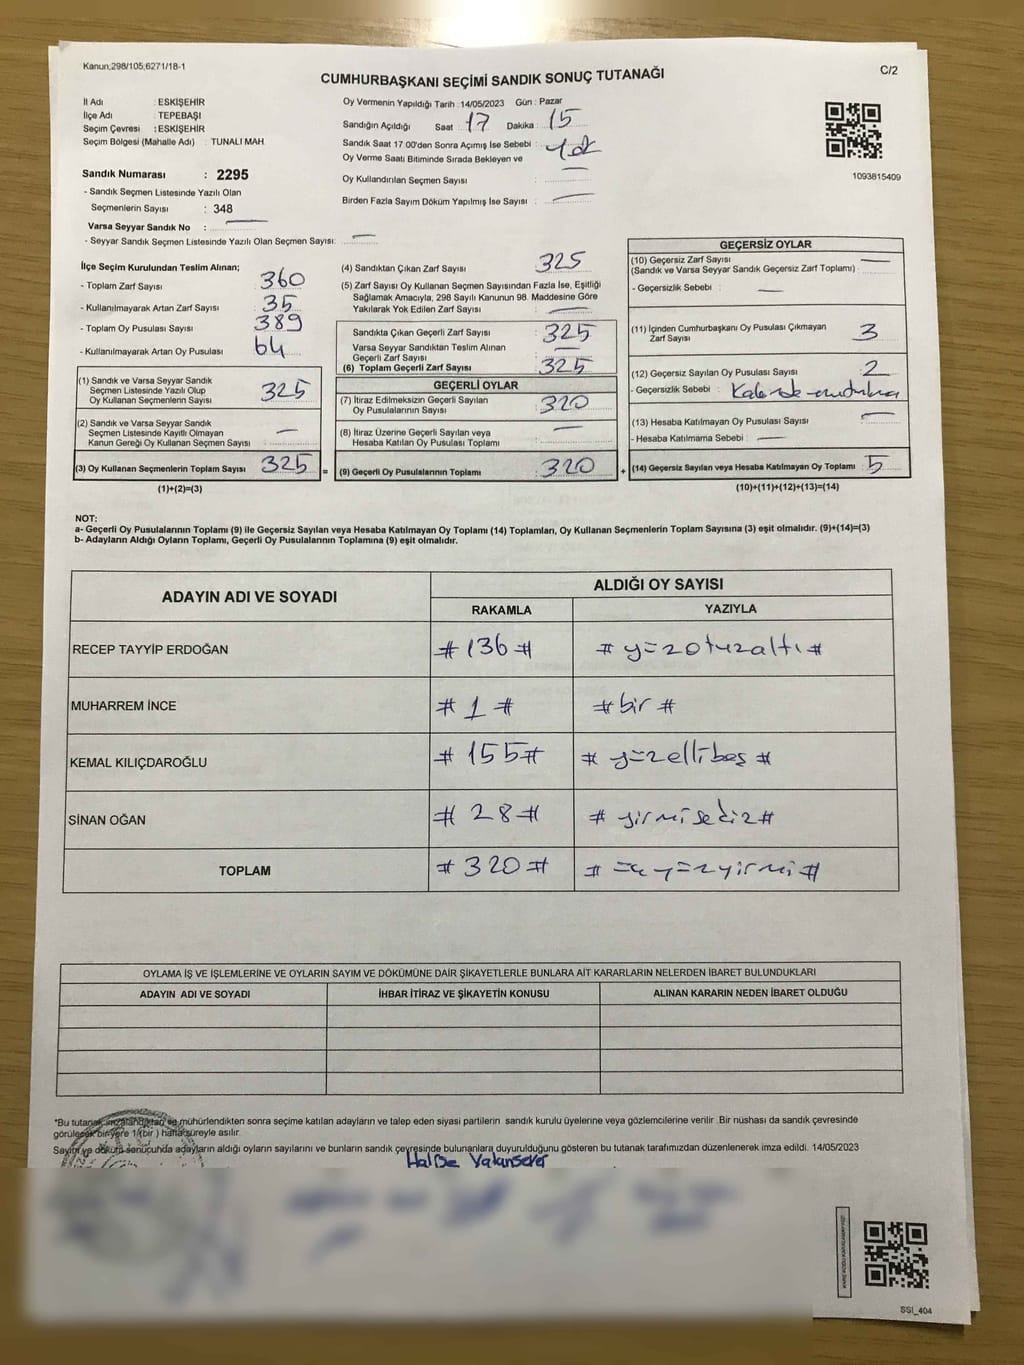 Kanun;298/105;6271/18-1
CUMHURBAŞKANI SEÇİMİ SANDIK SONUÇ TUTANAĞI
C/2
İl Adı : ESKİŞEHİR
İlçe Adı : TEPEBAŞI
Seçim Çevresi : ESKİŞEHİR
Seçim Bölgesi (Mahalle Adı) : TUNALI MAH
Sandık Numarası : 2295
- Sandık Seçmen Listesinde Yazılı Olan
Seçmenlerin Sayısı : 348
Varsa Seyyar Sandık No :
- Seyyar Sandık Seçmen Listesinde Yazılı Olan Seçmen Sayısı:
Oy Vermenin Yapıldığı Tarih :14/05/2023 Gün : Pazar
Sandığın Açıldığı Saat : 17 Dakika : 15
Sandık Saat 17.00'den Sonra Açımış İse Sebebi : Yok
Oy Verme Saati Bitiminde Sırada Bekleyen ve
Oy Kullandırılan Seçmen Sayısı :
Birden Fazla Sayım Döküm Yapılmış İse Sayısı :
1093815409
İlçe Seçim Kurulundan Teslim Alınan;
- Toplam Zarf Sayısı : 360
- Kullanılmayarak Artan Zarf Sayısı : 35
- Toplam Oy Pusulası Sayısı : 389
- Kullanılmayarak Artan Oy Pusulası : 64
(1) Sandık ve Varsa Seyyar Sandık
Seçmen Listesinde Yazılı Olup
Oy Kullanan Seçmenlerin Sayısı : 325
(2) Sandık ve Varsa Seyyar Sandık
Seçmen Listesinde Kayıtlı Olmayan
Kanun Gereği Oy Kullanan Seçmen Sayısı :
(3) Oy Kullanan Seçmenlerin Toplam Sayısı : 325 =
(1)+(2)=(3)
(4) Sandıktan Çıkan Zarf Sayısı : 325
(5) Zarf Sayısı Oy Kullanan Seçmen Sayısından Fazla İse, Eşitliği
Sağlamak Amacıyla, 298 Sayılı Kanunun 98. Maddesine Göre
Yakılarak Yok Edilen Zarf Sayısı :
Sandıkta Çıkan Geçerli Zarf Sayısı : 325
Varsa Seyyar Sandıktan Teslim Alınan
Geçerli Zarf Sayısı :
(6) Toplam Geçerli Zarf Sayısı : 325
GEÇERLİ OYLAR
(7) İtiraz Edilmeksizin Geçerli Sayılan
Oy Pusulalarının Sayısı : 320
(8) İtiraz Üzerine Geçerli Sayılan veya
Hesaba Katılan Oy Pusulası Toplamı :
(9) Geçerli Oy Pusulalarının Toplamı : 320 +
GEÇERSİZ OYLAR
(10) Geçersiz Zarf Sayısı :
(Sandık ve Varsa Seyyar Sandık Geçersiz Zarf Toplamı)
- Geçersizlik Sebebi :
(11) İçinden Cumhurbaşkanı Oy Pusulası Çıkmayan
Zarf Sayısı : 3
(12) Geçersiz Sayılan Oy Pusulası Sayısı : 2
- Geçersizlik Sebebi :
(13) Hesaba Katılmayan Oy Pusulası Sayısı :
- Hesaba Katılmama Sebebi :
(14) Geçersiz Sayılan veya Hesaba Katılmayan Oy Toplamı : 5
(10)+(11)+(12)+(13)=(14)
NOT:
a- Geçerli Oy Pusulalarının Toplamı (9) ile Geçersiz Sayılan veya Hesaba Katılmayan Oy Toplamı (14) Toplamları, Oy Kullanan Seçmenlerin Toplam Sayısına (3) eşit olmalıdır. (9)+(14)=(3)
b- Adayların Aldığı Oyların Toplamı, Geçerli Oy Pusulalarının Toplamına (9) eşit olmalıdır.
ADAYIN ADI VE SOYADI ALDIĞI OY SAYISI
RAKAMLA YAZIYLA
RECEP TAYYİP ERDOĞAN #136# #yüzotuzaltı#
MUHARREM İNCE #1# #bir#
KEMAL KILIÇDAROĞLU #155# #yüzellibeş#
SİNAN OĞAN #28# #yirmisekiz#
TOPLAM #320# #üçyüzyirmi#
OYLAMA İŞ VE İŞLEMLERİNE VE OYLARIN SAYIM VE DÖKÜMÜNE DAİR ŞİKAYETLERLE BUNLARA AİT KARARLARIN NELERDEN İBARET BULUNDUKLARI
ADAYIN ADI VE SOYADI İHBAR İTİRAZ VE ŞİKAYETİN KONUSU ALINAN KARARIN NEDEN İBARET OLDUĞU
*Bu tutanak imzalandıktan ve mühürlendikten sonra seçime katılan adayların ve talep eden siyasi partilerin sandık kurulu üyelerine veya gözlemcilerine verilir. Bir nüshası da sandık çevresinde
görülecek bir yere 1 (bir ) hafta süreyle asılır.
Sayım ve döküm sonucunda adayların aldığı oyların sayılarını ve bunların sandık çevresinde bulunanlara duyurulduğunu gösteren bu tutanak tarafımızdan düzenlenerek imza edildi. 14/05/2023
SSI_404